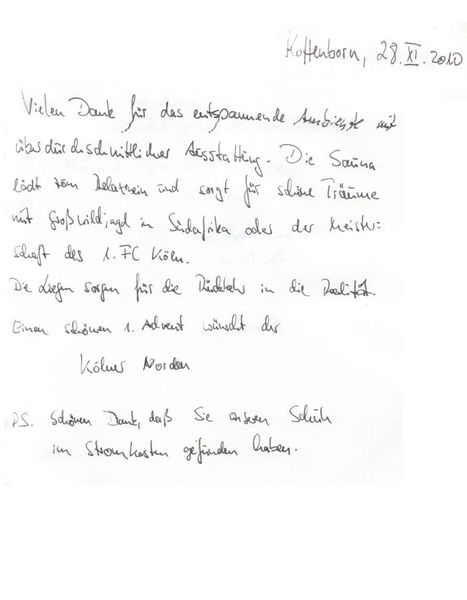 Kottenborn, 28.XI.2010
Vielen Dank für das entspannende Ambiente mit
überdurchschnittlicher Ausstattung. Die Sauna
lädt zum Relaxen ein und sorgt für schöne Träume
mit Großwildjagd in Südafrika oder der Meister-
schaft des 1. FC Köln.
Die Liegen sorgen für die Rückkehr in die Realität.
Einen schönen 1. Advent wünscht der
Kölner Norden
P.S. Schönen Dank, daß Sie unseren Schuh
im Stromkasten gefunden haben.